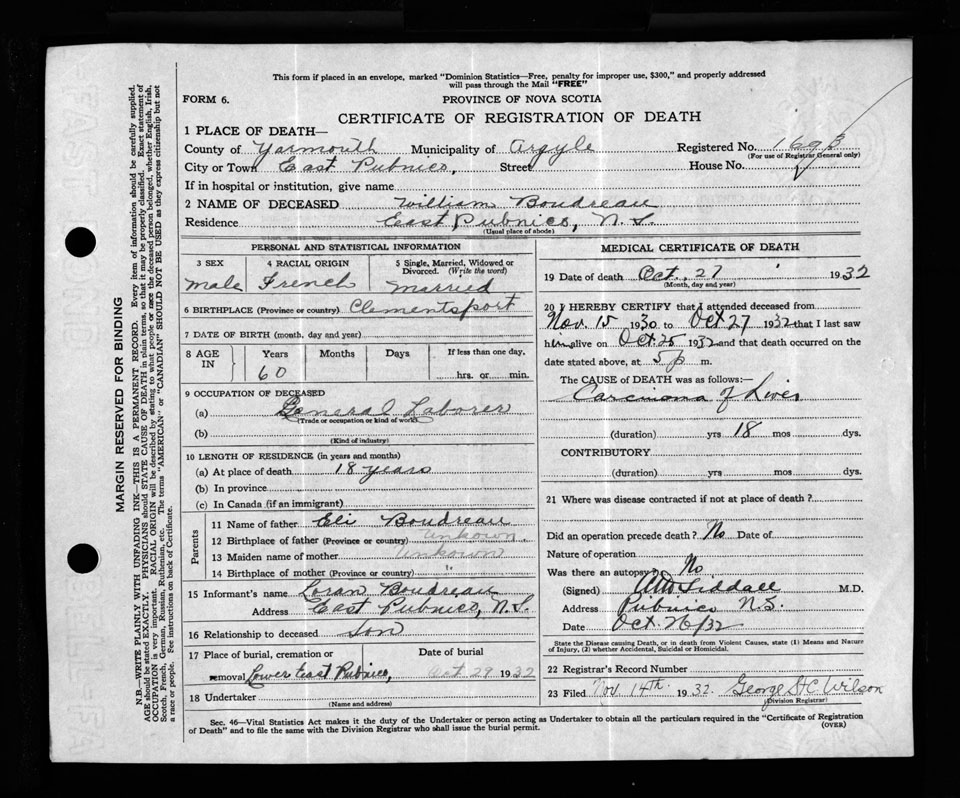 This form if placed in an envelope, marked "Dominion Statistics—Free, penalty for improper use, $300," and properly addressed
will pass through the Mail "FREE"
FORM 6.
PROVINCE OF NOVA SCOTIA
CERTIFICATE OF REGISTRATION OF DEATH
1 PLACE OF DEATH—
County of Yarmouth Municipality of Argyle Registered No.
(For use of Registrar General only)
City or Town East Pubnico, Street House No.
If in hospital or institution, give name
2 NAME OF DECEASED William Boudreau
Residence East Pubnico, N. S.
(Usual place of abode)
PERSONAL AND STATISTICAL INFORMATION
3 SEX 4 RACIAL ORIGIN 5 Single, Married, Widowed or
Divorced. (Write the word)
male French married
6 BIRTHPLACE (Province or country) Clementsport
7 DATE OF BIRTH (month, day and year)
8 AGE IN Years Months Days If less than one day,
60 hrs. or min.
9 OCCUPATION OF DECEASED
(a) General Laborer
(Trade or occupation or kind of work)
(b)
(Kind of industry)
10 LENGTH OF RESIDENCE (in years and months)
(a) At place of death 18 years
(b) In province
(c) In Canada (if an immigrant)
Parents
11 Name of father Eli Boudreau
12 Birthplace of father (Province or country) Unkown.
13 Maiden name of mother Unkown
14 Birthplace of mother (Province or country) "
15 Informant's name Loran Boudreau
Address East Pubnico, N. S.
16 Relationship to deceased Son
17 Place of burial, cremation or Date of burial
removal Lower East Pubnico, Oct 29 1932
18 Undertaker
(Name and address)
MEDICAL CERTIFICATE OF DEATH
19 Date of death Oct. 27 1932
(Month, day and year)
20 I HEREBY CERTIFY that I attended deceased from
Nov. 15 1930 to Oct 27 1932 that I last saw
him alive on Oct. 25 1932 and that death occurred on the
date stated above, at 5 p m.
The CAUSE OF DEATH was as follows:—
Carcinoma of Liver
(duration) yrs 18 mos dys.
CONTRIBUTORY
(duration) yrs. mos. dys.
21 Where was disease contracted if not at place of death?
Did an operation precede death? No Date of
Nature of operation
Was there an autopsy? No
(Signed) Siddall M.D.
Address Pubnico N.S.
Date Oct. /32
State the Disease causing Death, or in death from Violent Causes, state (1) Means and Nature
of Injury, (2) whether Accidental, Suicidal or Homicidal.
22 Registrar's Record Number
23 Filed Nov. 14th 1932. George St C. Wilson
(Division Registrar)
Sec. 46—Vital Statistics Act makes it the duty of the Undertaker or person acting as Undertaker to obtain all the particulars required in the "Certificate of Registration
of Death" and to file the same with the Division Registrar who shall issue the burial permit.
(OVER)
MARGIN RESERVED FOR BINDING
N.B.—WRITE PLAINLY WITH UNFADING INK—THIS IS A PERMANENT RECORD. Every item of information should be carefully supplied.
AGE should be stated EXACTLY. PHYSICIANS should STATE CAUSE OF DEATH in plain terms, so that it may be properly classified. Exact statement of
OCCUPATION is very important. RACIAL ORIGIN will be described by stating to what people or race the deceased person belonged, whether English, Irish,
Scotch, French, German, Russian, Ruthenian, etc. The terms "AMERICAN" or "CANADIAN" SHOULD NOT BE USED as they express citizenship but not
a race or people. See instructions on back of Certificate.